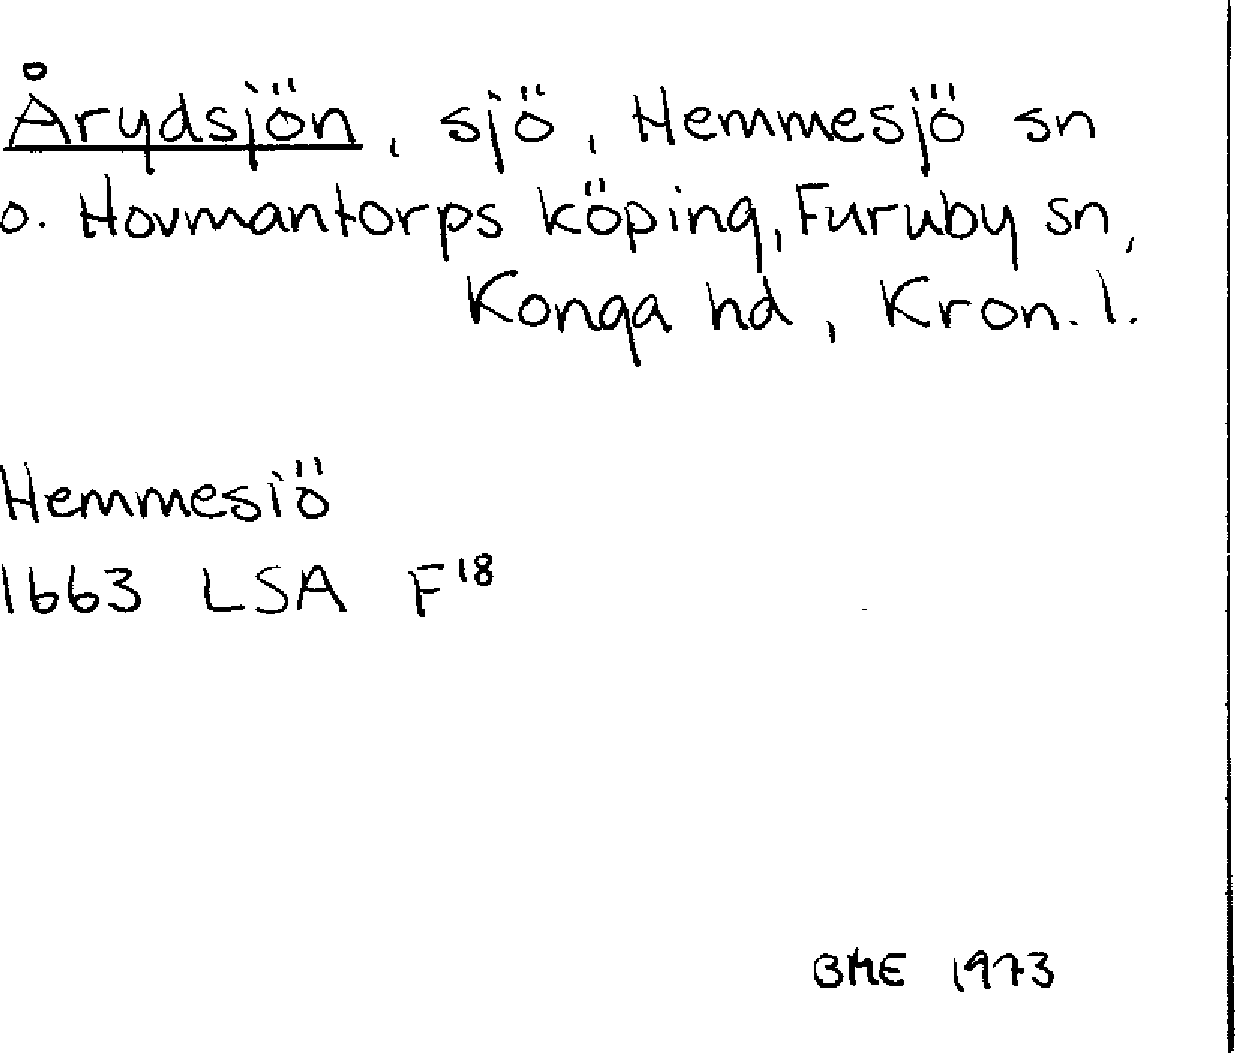 Årydsjön, sjö, Hemmesjö sn
o. Hovmantorps köping, Furuby sn,
Konga hd, Kron. l.
Hemmesiö
1663 LSA F18
BME 1973